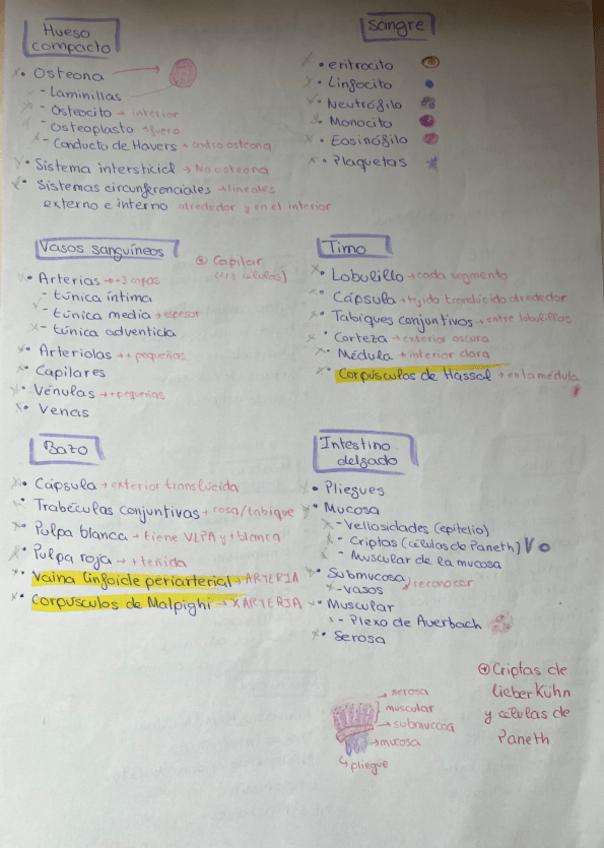 Hueso
compacto
• Osteona
- Laminillas
- Osteocito → interior
- Osteoplasto → fuera
- Conducto de Havers → centro osteona
• Sistema intersticial → No osteona
• Sistemas circunferenciales → lineales
externo e interno alrededor y en el interior
Sangre
• eritrocito
• Linfocito
• Neutrófilo
• Monocito
• Eosinófilo
• Plaquetas
Vasos sanguíneos
Capilar
• Arterias → +3 capas
- túnica íntima
- túnica media → espesor
- túnica adventicia
• Arteriolas → + pequeñas
• Capilares
• Vénulas → + pequeñas
• Venas
Timo
• Lobulillo → cada segmento
• Cápsula → tejido translúcido alrededor
• Tabiques conjuntivos → entre lobulillos
• Corteza → exterior oscura
• Médula → interior clara
• Corpúsculos de Hassal → en la médula
Bazo
• Cápsula → exterior translúcida
• Trabéculas conjuntivas → rosa/tabique
• Pulpa blanca → tiene VLPA y + blanca
• Pulpa roja → + teñida
• Vaina linfoide periarterial → ARTERIA
• Corpúsculos de Malpighi → X ARTERIA
Intestino
delgado
• Pliegues
• Mucosa
- Vellosidades (epitelio)
- Criptas (células de Paneth)
- Muscular de la mucosa
• Submucosa
- vasos
reconocer
• Muscular
- Plexo de Averbach
• Serosa
→ serosa
muscular
→ submucosa
→ mucosa
↳ pliegue
Criptas de
Lieberkühn
y células de
Paneth